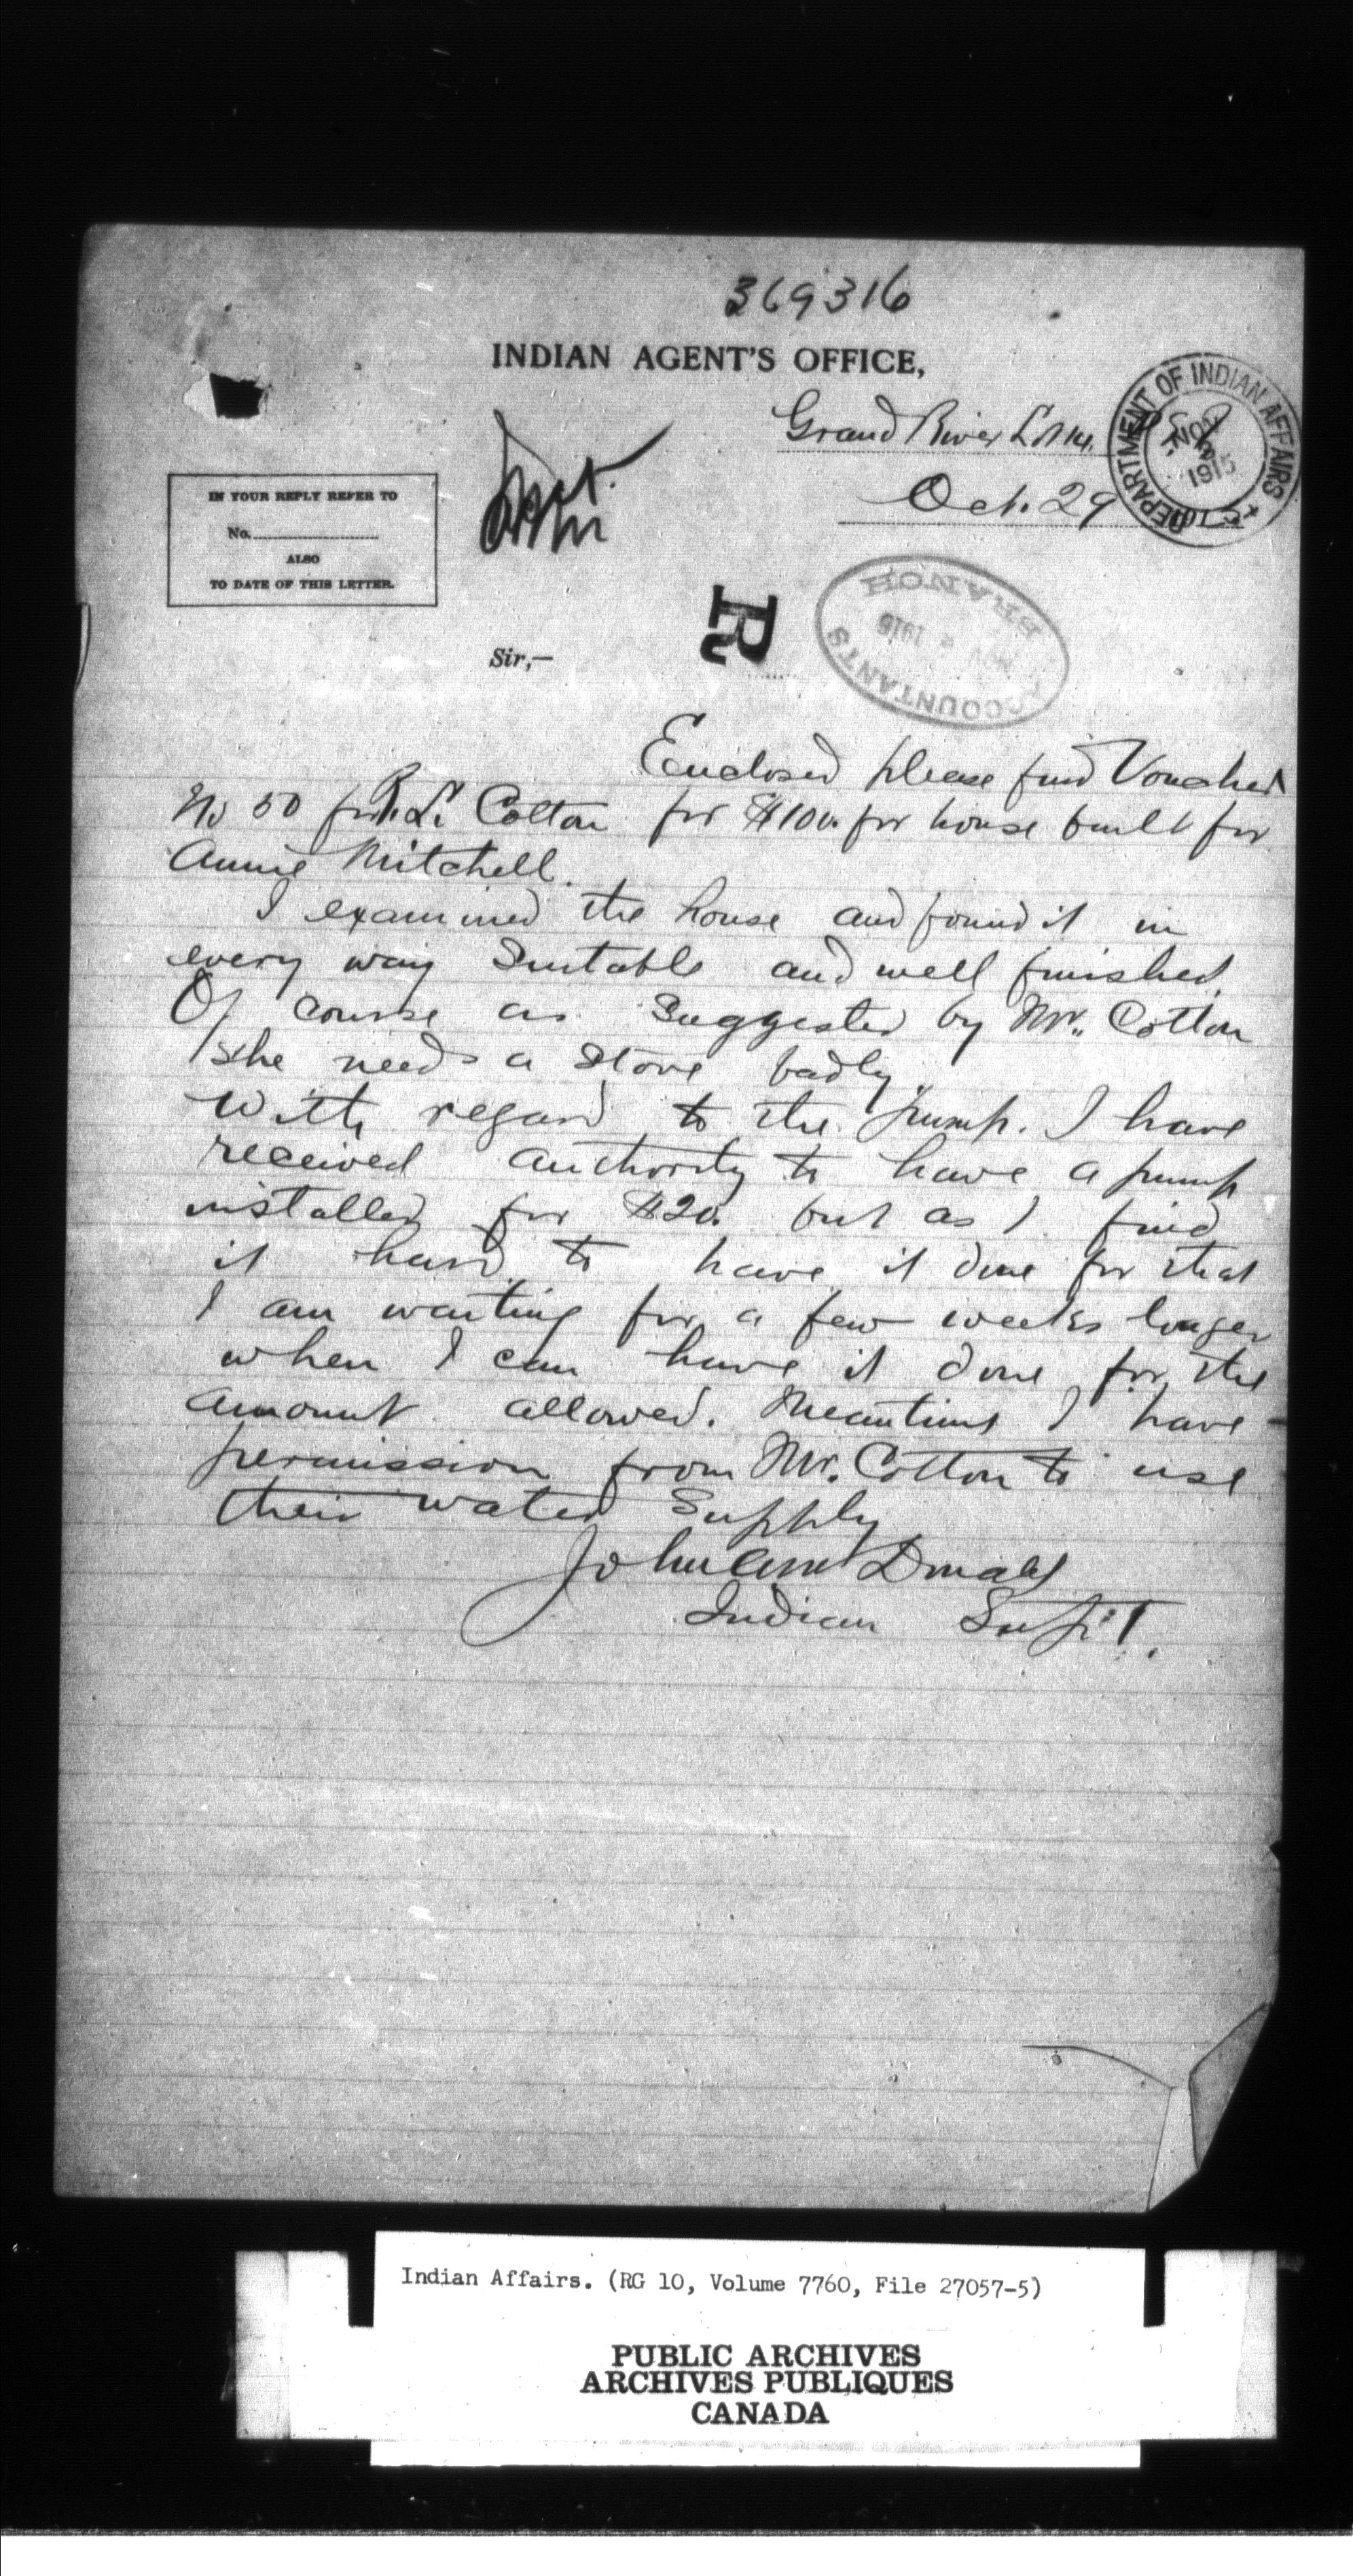 369316
INDIAN AGENT'S OFFICE,
Grand River Lot 14.
Oct. 29
DEPARTMENT OF INDIAN AFFAIRS
NOV 2 1915
IN YOUR REPLY REFER TO
No.
ALSO
TO DATE OF THIS LETTER.
R
ACCOUNTANTS BRANCH
NOV 1915
Sir,—
Enclosed please find Voucher
No 50 for L. Cotton for $100. for house built for
Annie Mitchell.
I examined the house and found it in
every way suitable and well finished.
Of course as suggested by Mr. Cotton
she needs a stove badly.
With regard to the pump. I have
received authority to have a pump
installed for $20. but as I find
it hard to have it done for that
I am waiting for a few weeks longer
when I can have it done for the
amount allowed. Meantime I have
permission from Mr. Cotton to use
their water supply
John A McDonald
Indian Supt.
Indian Affairs. (RG 10, Volume 7760, File 27057-5)
PUBLIC ARCHIVES
ARCHIVES PUBLIQUES
CANADA